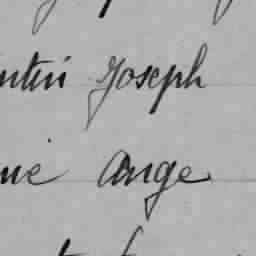 ntin Joseph
nie Ange